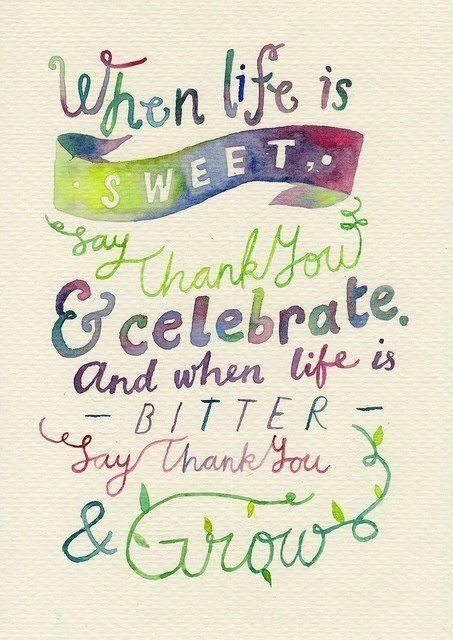 When life is
SWEET,
say thank You
& celebrate.
And when life is
– BITTER –
Say Thank You
& Grow